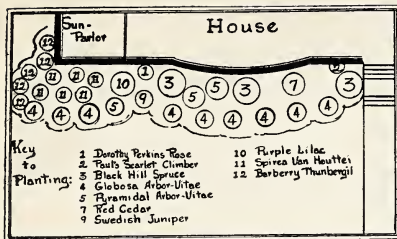 Sun-
Parlor
House
12
12
12
12
12
11
11
11
11
11
11
10
1
3
5
5
3
7
3
4
4
4
5
9
4
4
4
4
4
4
Key
to
Planting:
1 Dorothy Perkins Rose
2 Paul's Scarlet Climber
3 Black Hill Spruce
4 Globosa Arbor-Vitae
5 Pyramidal Arbor-Vitae
7 Red Cedar
9 Swedish Juniper
10 Purple Lilac
11 Spirea Van Houttei
12 Barberry Thunbergii